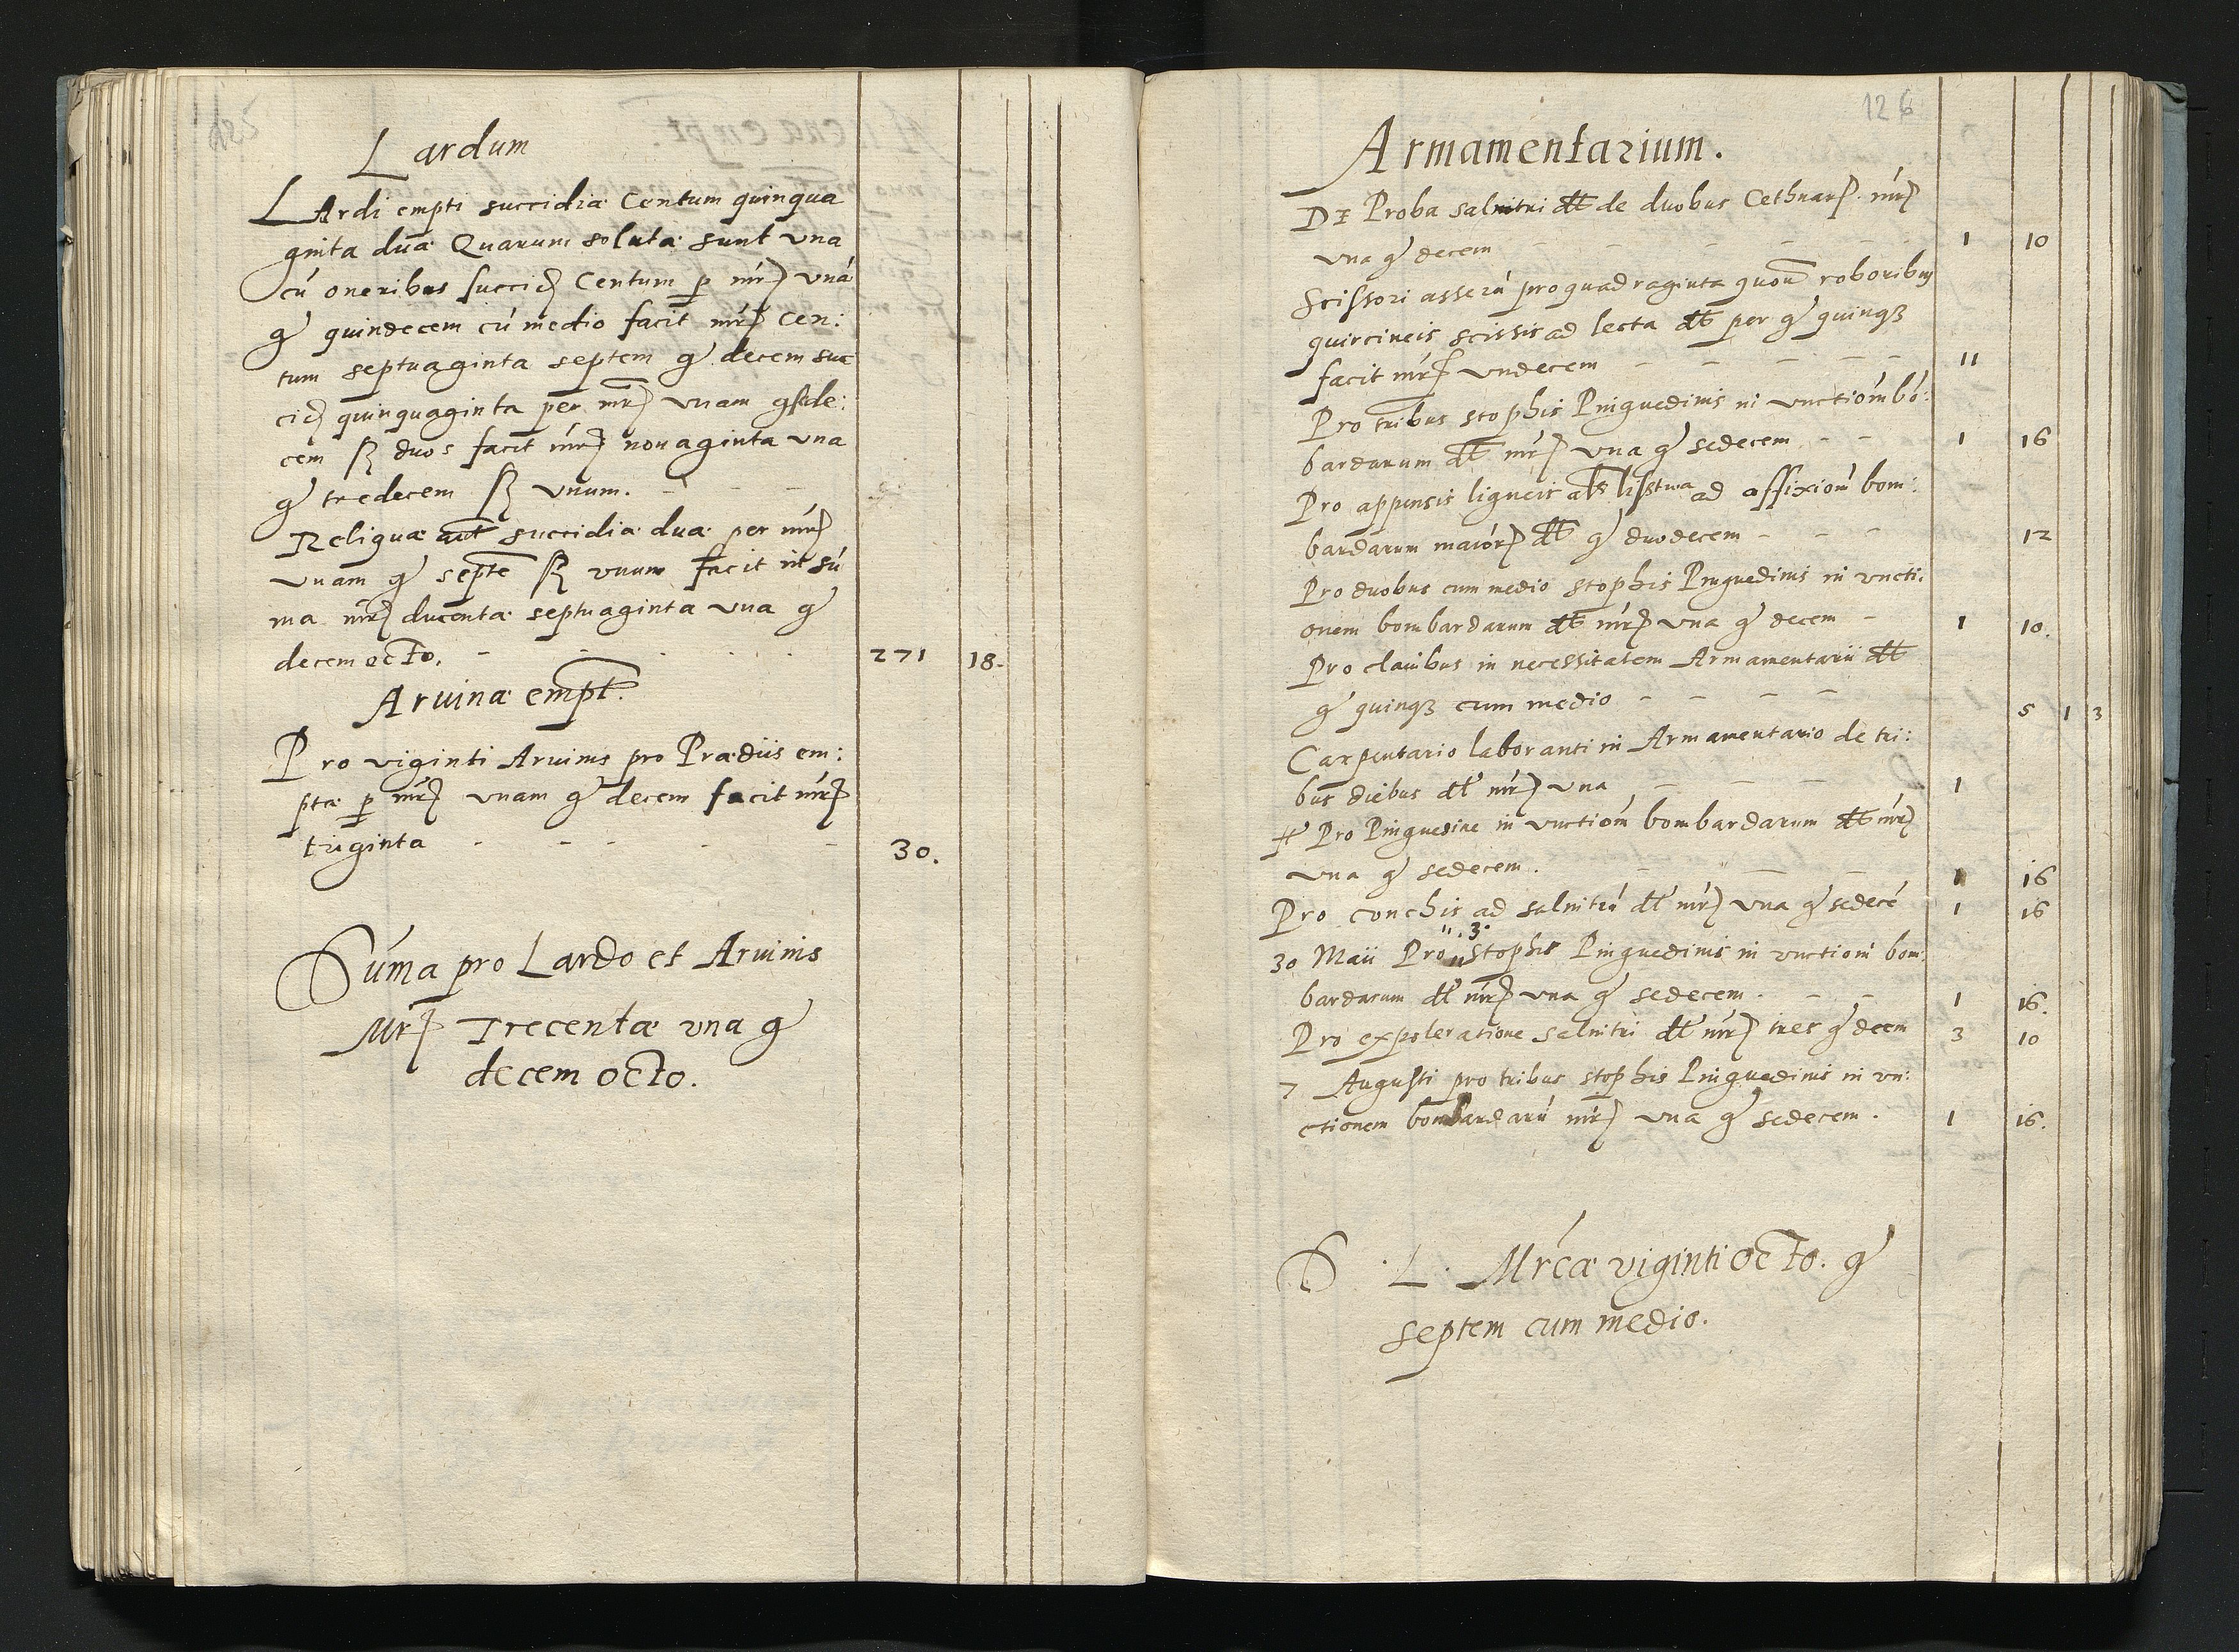 125
Lardum
LArdi empti succidiæ Centum quinqua
ginta duæ Quarum solutæ sunt vna
cú oneribus succid Centum p mr̃ vná
gͦ quindecem cú medio facit mr̃ cen:
tum septuaginta septem gͦ decem suc
cid quinquaginta per mr̃ vnam gͦ sede:
cem ß duos facit mr̃ nonaginta vna
gͦ tredecem ß vnum. - - -
Reliquæ aut̃ succidiæ duæ per mr̃
vnam gͦ septẽ ß vnum facit in sú
ma mr̃ ducentæ septuaginta vna gͦ
decem octo. - - - - - 271 18.
Aruinæ empt.
Pro viginti Aruinis pro Prædiis em:
ptæ p mr̃ vnam gͦ decem facit mr̃
triginta - - - - - 30.
Súma pro Lardo et Aruinis
Mr̃ Trecentæ vna gͦ
decem octo.
126
Armamentarium.
DE Proba salnitri dt̃ de duobus Cethnar mr̃
vna gͦ decem - - - - 1 10
Scissori asserú pro quadraginta quoũ roboribus
quircineis scissis ad lecta dt̃ per gͦ quinqз
facit mr̃ vndecem - - - - - 11
Pro tribus stophis Pinguedinis in vnctiom bó:
bardarum dt̃ mr̃ vna gͦ sedecem - - 1 16
Pro appensis ligneis als listwa ad affixiom bom:
bardarum maiór dt̃ gͦ duodecem - - - 12
Pro duobus cum medio stophis Pinguedinis in vncti:
onem bombardarum dt̃ mr̃ vna gͦ decem - 1 10.
Pro clauibus in necessitatem Armamentarii dt̃
gͦ quinqз cum medio - - - - 5 1 3
Carpentario laboranti in Armamentario de tri:
bus diebus dt̃ mr̃ vna - - - 1
Pro Pinguedine in vnctiom bombardarum dt̃ mr̃
vna gͦ sedecem. - - - 1 16
Pro conchis ad salnitrú dt̃ mr̃ vna gͦ sedecé 1 16
30 Maii Pro 3. stophis Pinguedinis in vnctiom bom:
bardarum dt̃ mr̃ vna gͦ sedecem. - - 1 16.
Pro expoleratione salnitri dt̃ mr̃ tres gͦ decem 3 10
7 Augusti pro tribus stophis Pinguedinis in vn:
ctionem bombardarú mr̃ vna gͦ sedecem. 1 16.
S . L . Mrcæ viginti octo. gͦ
septem cum medio.